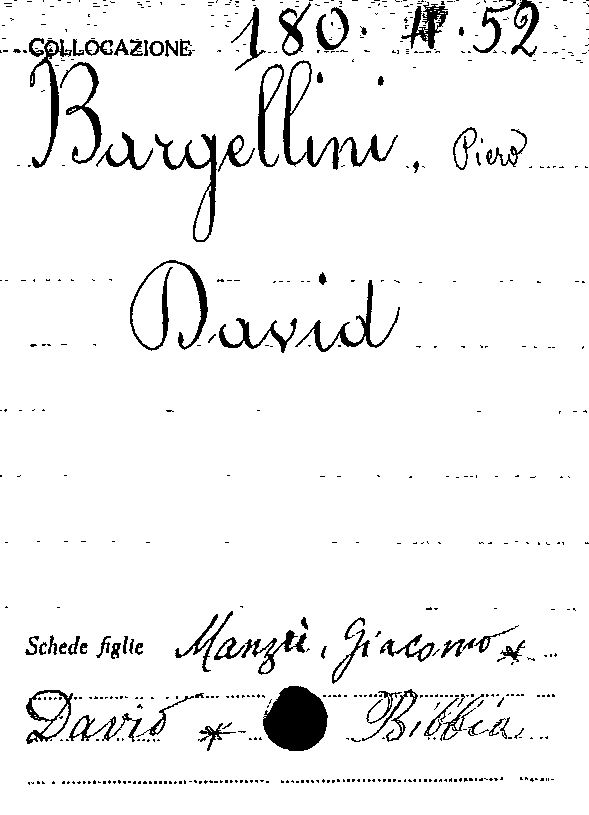 COLLOCAZIONE 180. 52
Bargellini, Piero
David
Schede figlie Manzù, Giacomo *
David * Bibbia